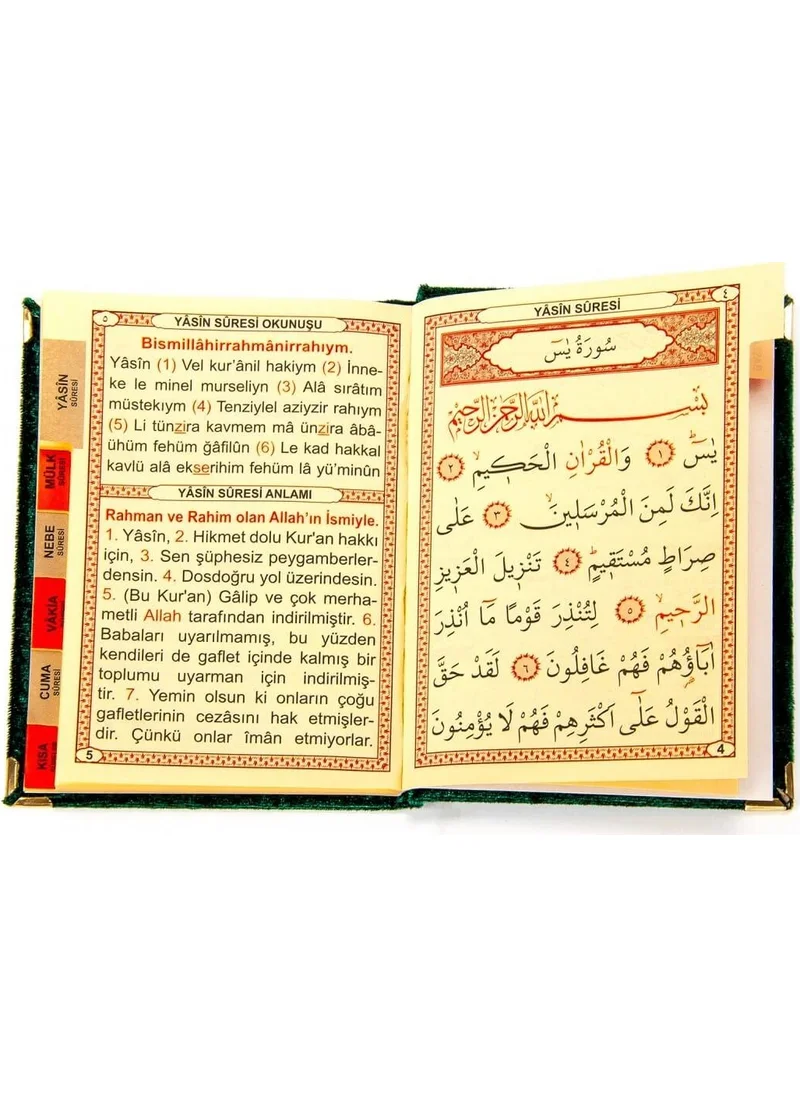 ٥
YÂSÎN SÛRESİ OKUNUŞU
Bismillâhirrahmânirrahıym.
Yâsîn (1) Vel kur’ânil hakiym (2) İnne-
ke le minel murseliyn (3) Alâ sırâtım
müstekıym (4) Tenziylel aziyzir rahıym
(5) Li tünzira kavmem mâ ünzira âbâ-
ühüm fehüm ğafilûn (6) Le kad hakkal
kavlü alâ ekserihim fehüm lâ yü’minûn
YÂSÎN SÛRESİ ANLAMI
Rahman ve Rahim olan Allah’ın İsmiyle.
1. Yâsîn, 2. Hikmet dolu Kur'an hakkı
için, 3. Sen şüphesiz peygamberler-
densin. 4. Dosdoğru yol üzerindesin.
5. (Bu Kur'an) Gâlip ve çok merha-
metli Allah tarafından indirilmiştir. 6.
Babaları uyarılmamış, bu yüzden
kendileri de gaflet içinde kalmış bir
toplumu uyarman için indirilmiş-
tir. 7. Yemin olsun ki onların çoğu
gafletlerinin cezâsını hak etmişler-
dir. Çünkü onlar îmân etmiyorlar.
5
YÂSÎN
SÛRESİ
MÜLK
SÛRESİ
NEBE
SÛRESİ
VÂKIA
CUMA
SÛRESİ
KISA
٤
YÂSÎN SÛRESİ
سُورَةُ يٰسٓ
بِسْمِ اللّٰهِ الرَّحْمٰنِ الرَّحِيمِ
يٰسٓ ﴿١﴾ وَالْقُرْاٰنِ الْحَكِيمِ ﴿٢﴾
اِنَّكَ لَمِنَ الْمُرْسَلِينَ ﴿٣﴾ عَلٰى
صِرَاطٍ مُسْتَقِيمٍ ﴿٤﴾ تَنْزِيلَ الْعَزِيزِ
الرَّحِيمِ ﴿٥﴾ لِتُنْذِرَ قَوْمًا مَٓا اُنْذِرَ
اٰبَٓاؤُ۬هُمْ فَهُمْ غَافِلُونَ ﴿٦﴾ لَقَدْ حَقَّ
الْقَوْلُ عَلٰٓى اَكْثَرِهِمْ فَهُمْ لَا يُؤْمِنُونَ
4